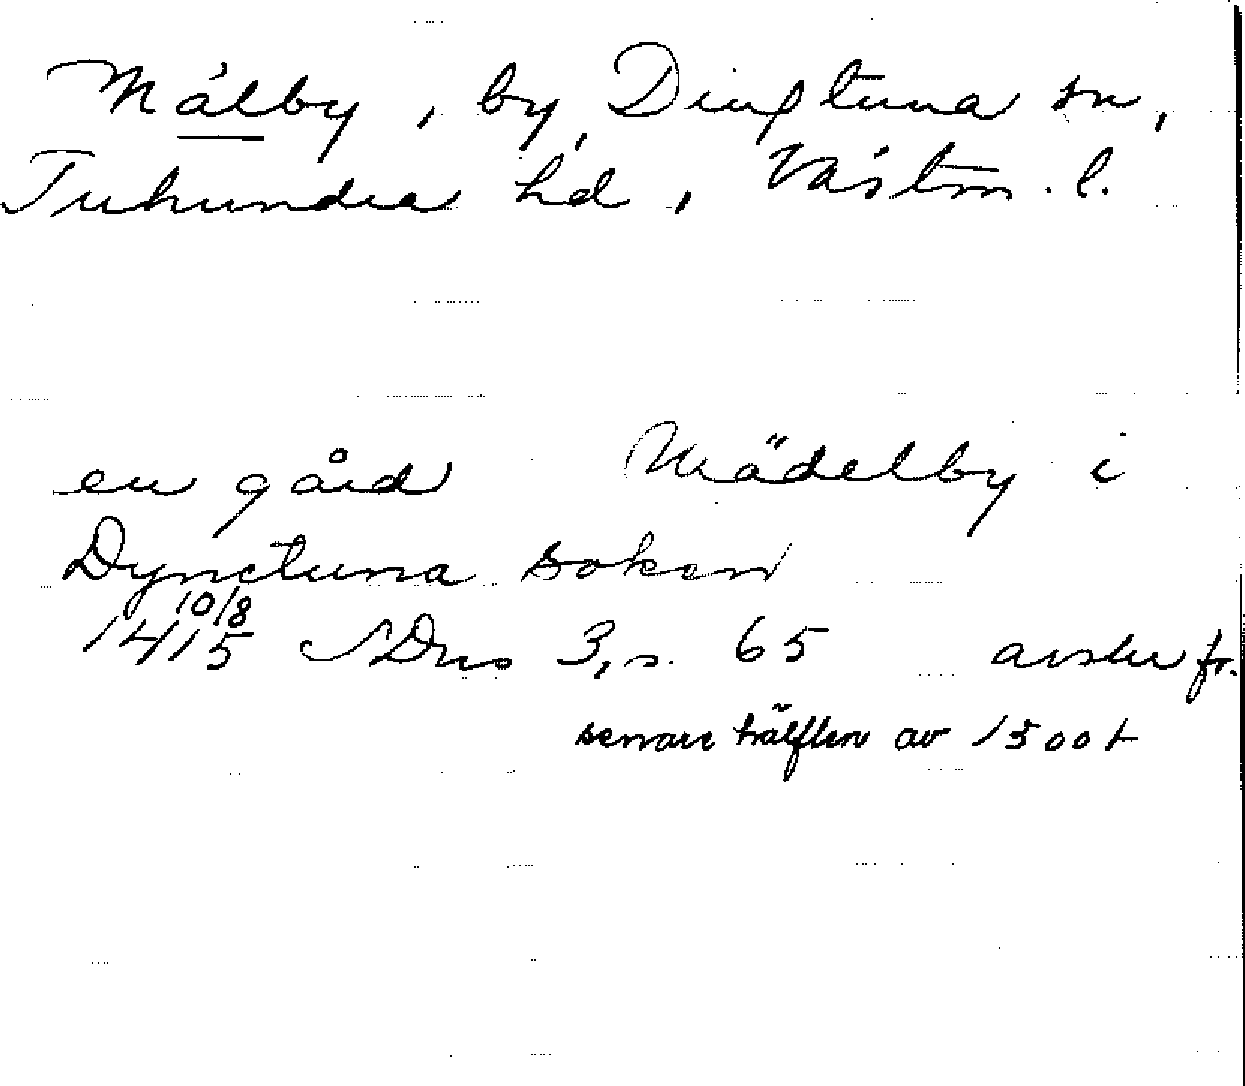 Målby, by, Dingtuna sn,
Tuhundra hd, Västm. l.
en gård Mädelby i
Dynctuna soken
1415 10/8 SDns 3, s. 65 avskr fr.
senare hälften av 1500t